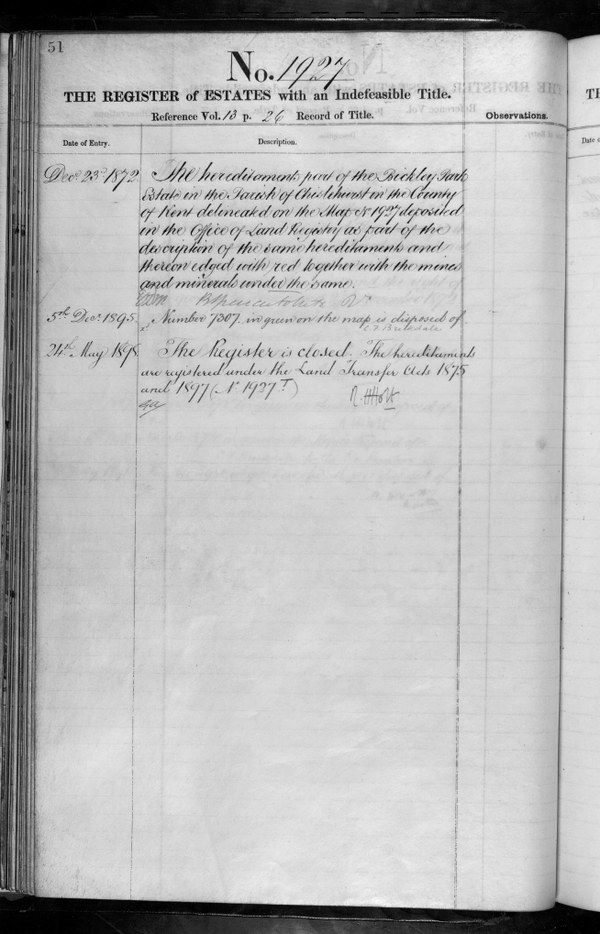 51
No. 1927
THE REGISTER of ESTATES with an Indefeasible Title.
Reference Vol. 13 p. 26 Record of Title.
Observations.
Date of Entry.
Description.
Decr 23d 1872
The hereditaments part of the Bickley Park
Estate in the Parish of Chislehurst in the County
of Kent delineated on the Map No 1927 deposited
in the Office of Land Registry as part of the
description of the same hereditaments and
thereon edged with red together with the mines
and minerals under the same.
5th Decr 1895.
Number 7307 in green on the map is disposed of
24th May 1898
The Register is closed. The hereditaments
are registered under the Land Transfer Acts 1875
and 1897 (No 1927 T)
R. H. Holt